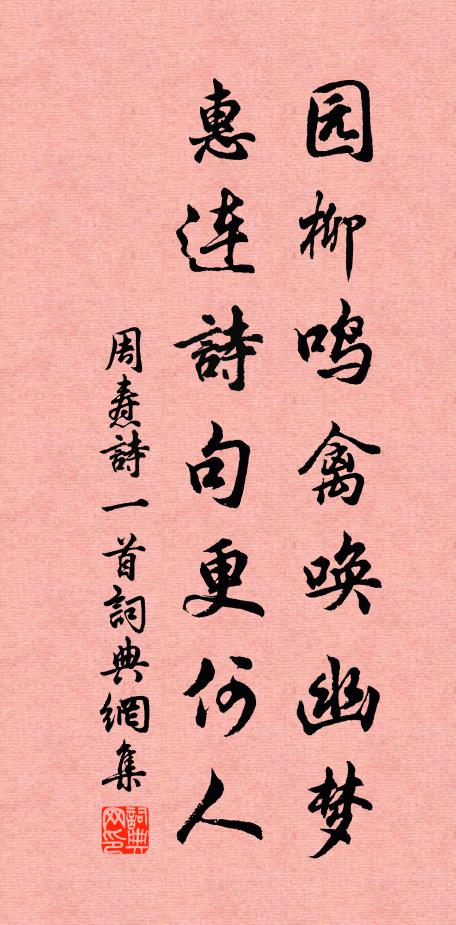 园柳鸣禽唤幽梦
惠连詩句更何人
周焘詩一首詞典網集
詞典网印